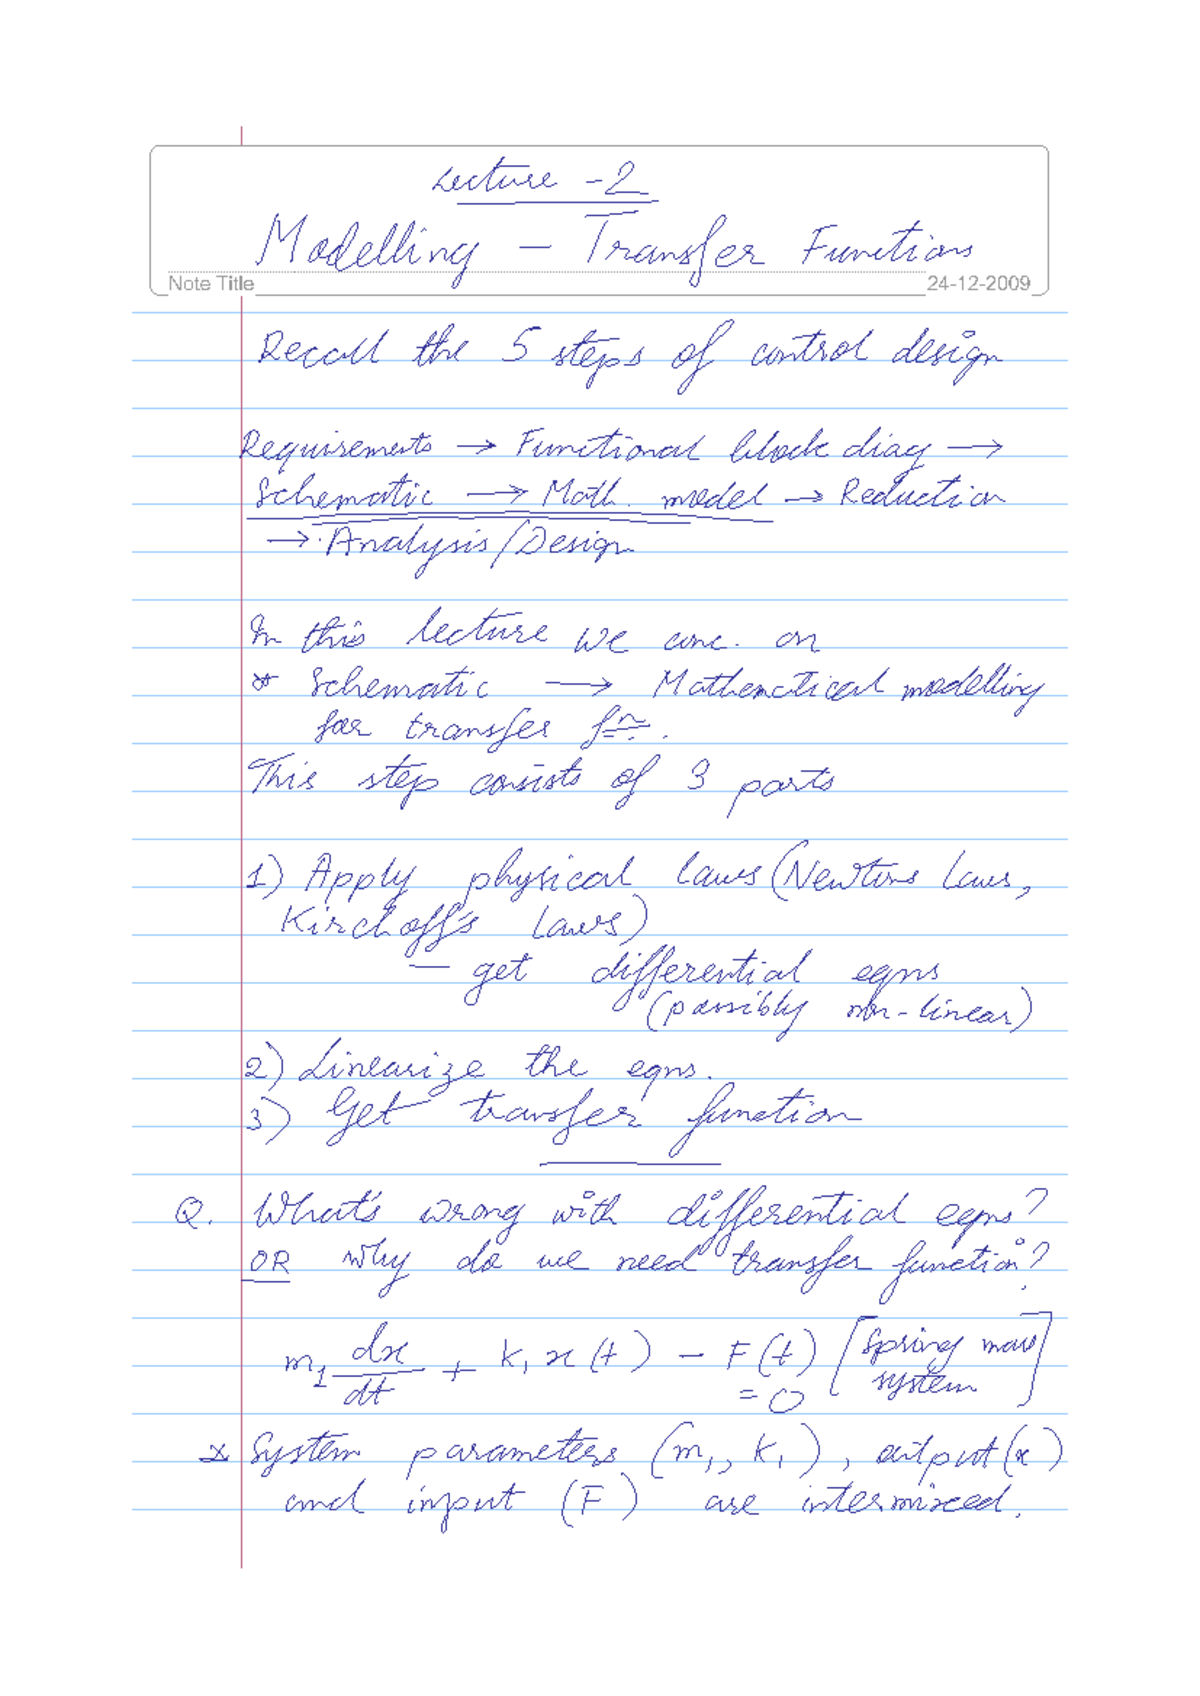 Lecture - 2
Modelling – Transfer Functions
Note Title 24-12-2009
Recall the 5 steps of control design
Requirements → Functional block diag →
Schematic → Math. model → Reduction
→ Analysis/Design
In this lecture we conc. on
* Schematic → Mathematical modelling
for transfer fn.
This step consists of 3 parts
1) Apply physical laws (Newtons Laws,
Kirchoff's Laws)
— get differential eqns
(possibly non-linear)
2) Linearize the eqns.
3) Get transfer function
Q. What's wrong with differential eqns?
OR why do we need transfer function?
m₁ dx/dt + K₁ x(t) – F(t) = 0 [Spring mass system]
* System parameters (m₁, K₁), output (x)
and input (F) are intermixed.